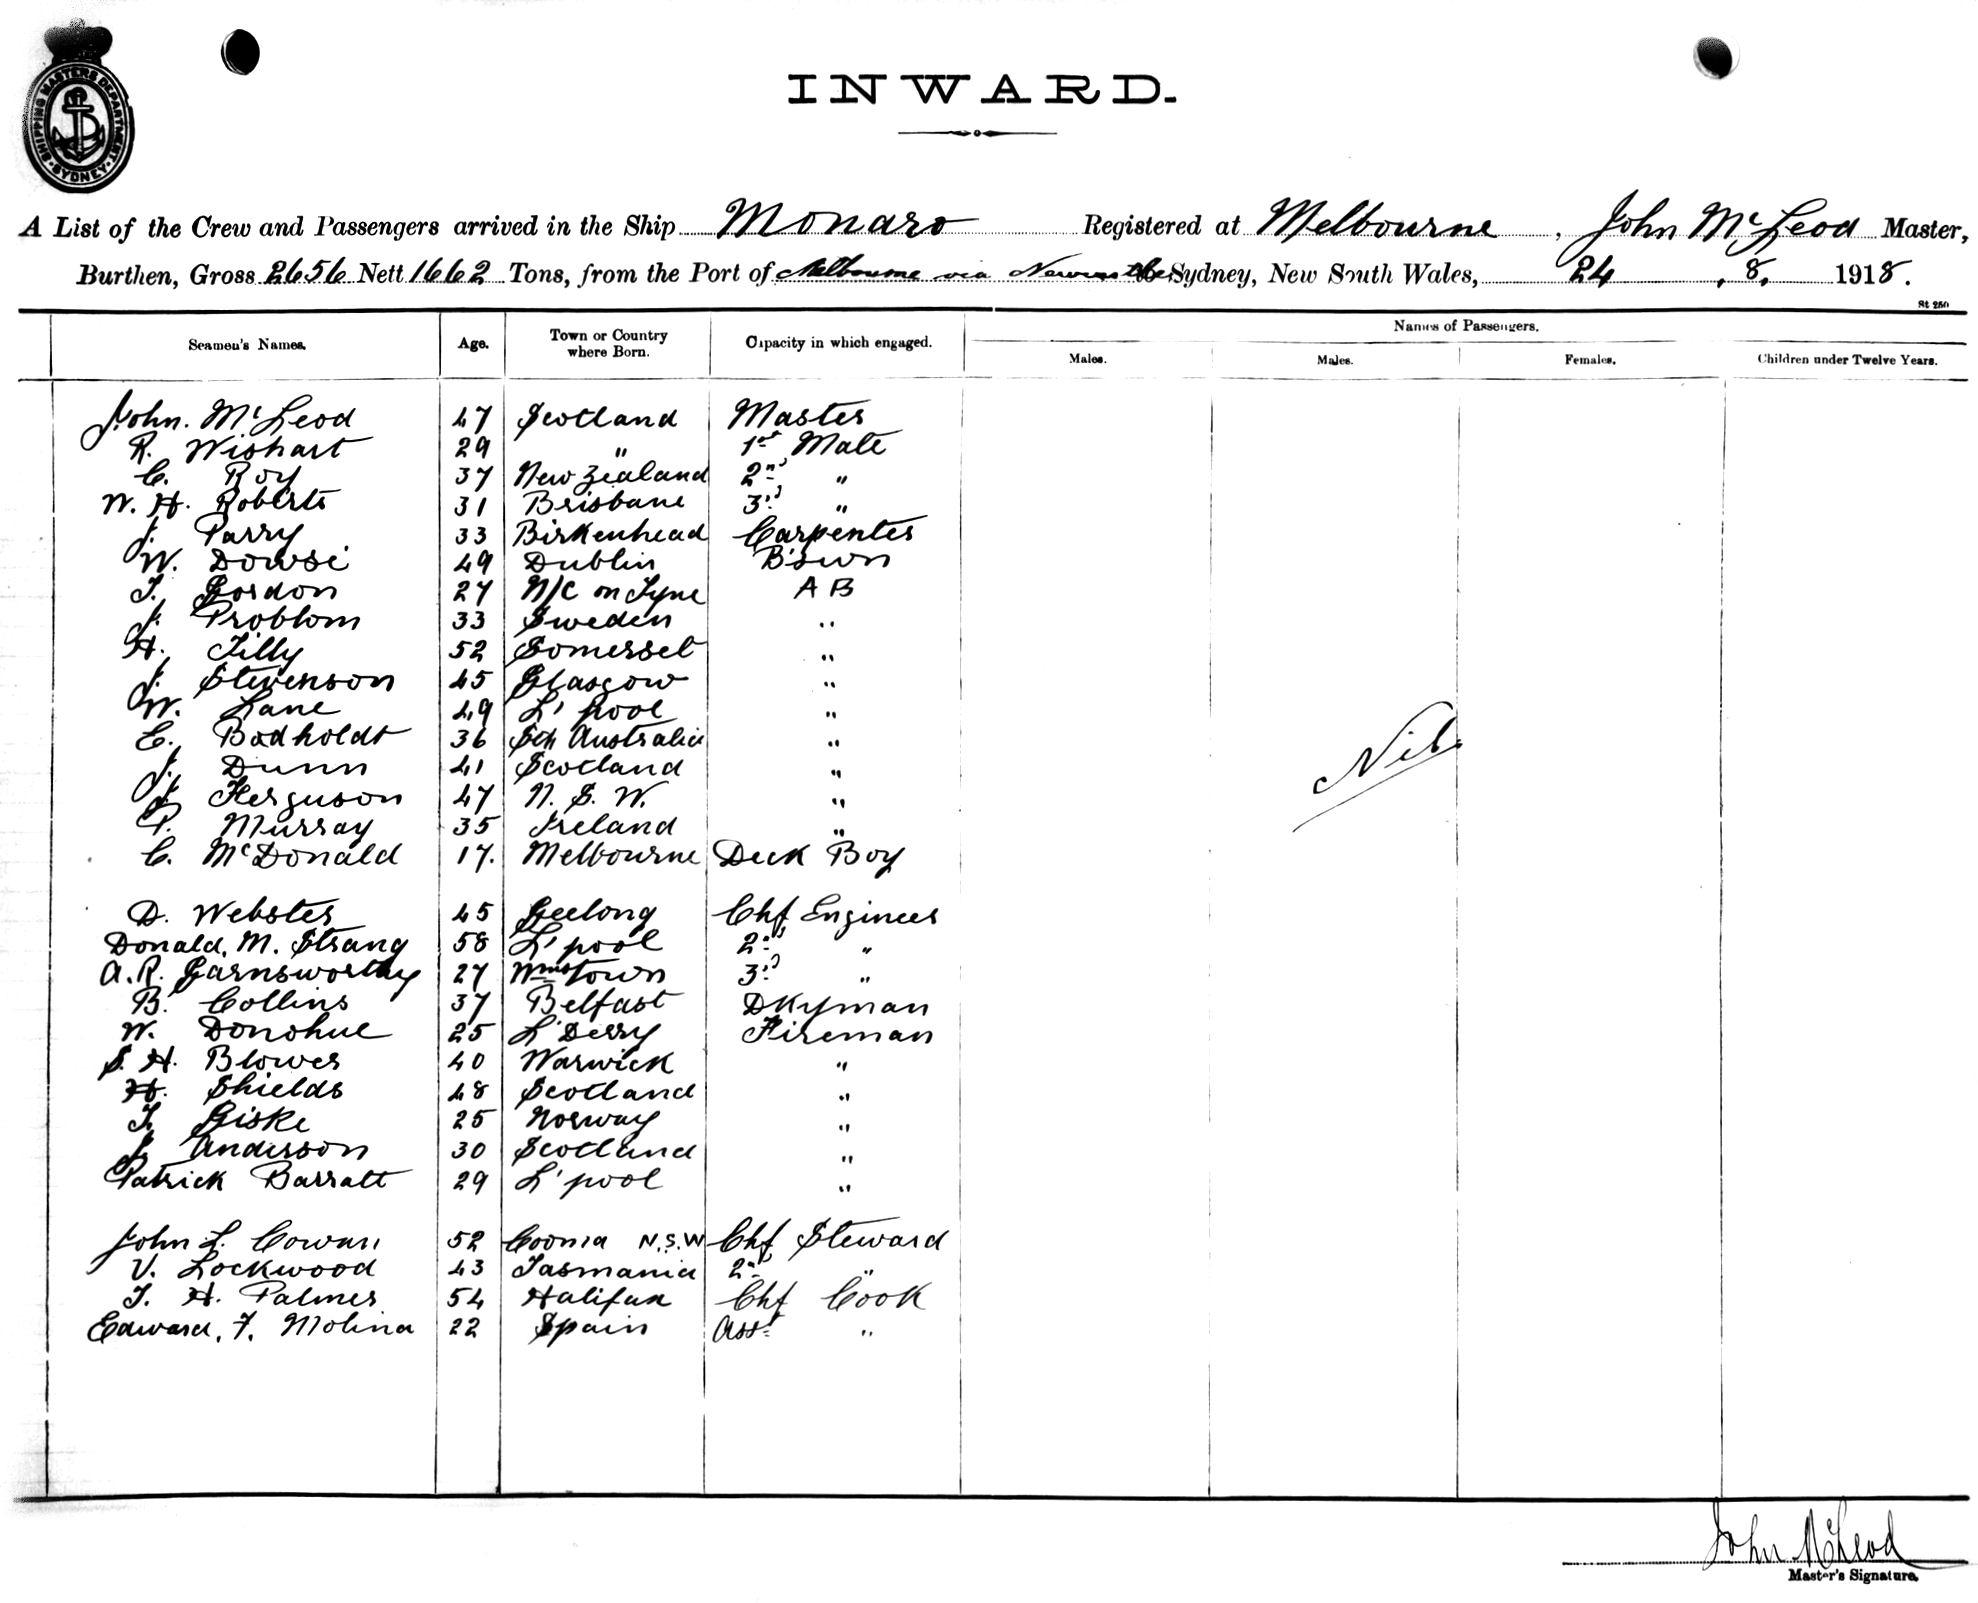 SHIPPING MASTERS DEPARTMENT
SYDNEY
INWARD.
A List of the Crew and Passengers arrived in the Ship Monaro Registered at Melbourne, John McLeod Master,
Burthen, Gross 2656 Nett 1662 Tons, from the Port of Melbourne via Newcastle Sydney, New South Wales, 24, 8, 1918.
St 250
Seamen's Names. Age. Town or Country where Born. Capacity in which engaged. Names of Passengers.
Males. Males. Females. Children under Twelve Years.
John. McLeod 47 Scotland Master
R. Wishart 29 " 1st Mate
C. Roy 37 New Zealand 2nd "
W. H. Roberts 31 Brisbane 3rd "
J. Parry 33 Birkenhead Carpenter
W. Dowse 49 Dublin B'swn
T. Gordon 27 N/C on Tyne A B
J. Problom 33 Sweden "
H. Tilly 52 Somerset "
J. Stevenson 45 Glasgow "
W. Lane 49 L'pool "
E. Bodholdt 36 Sth Australia "
J. Dunn 41 Scotland "
J. Ferguson 47 N. S. W. "
P. Murray 35 Ireland "
C. McDonald 17. Melbourne Deck Boy
Nil
D. Webster 45 Geelong Chf Engineer
Donald. M. Strang 58 L'pool 2nd "
A. R. Garnsworthy 27 Wmstown 3rd "
B. Collins 37 Belfast Dkyman
W. Donohue 25 L'Derry Fireman
S. H. Blower 40 Warwick "
H. Shields 48 Scotland "
T. Giske 25 Norway "
J. Anderson 30 Scotland "
Patrick Barratt 29 L'pool "
John L. Cowan 52 Cooma N.S.W Chf Steward
V. Lockwood 43 Tasmania 2nd "
T. H. Palmer 54 Halifax Chf Cook
Edward. F. Molina 22 Spain Asst "
John McLeod
Master's Signature.